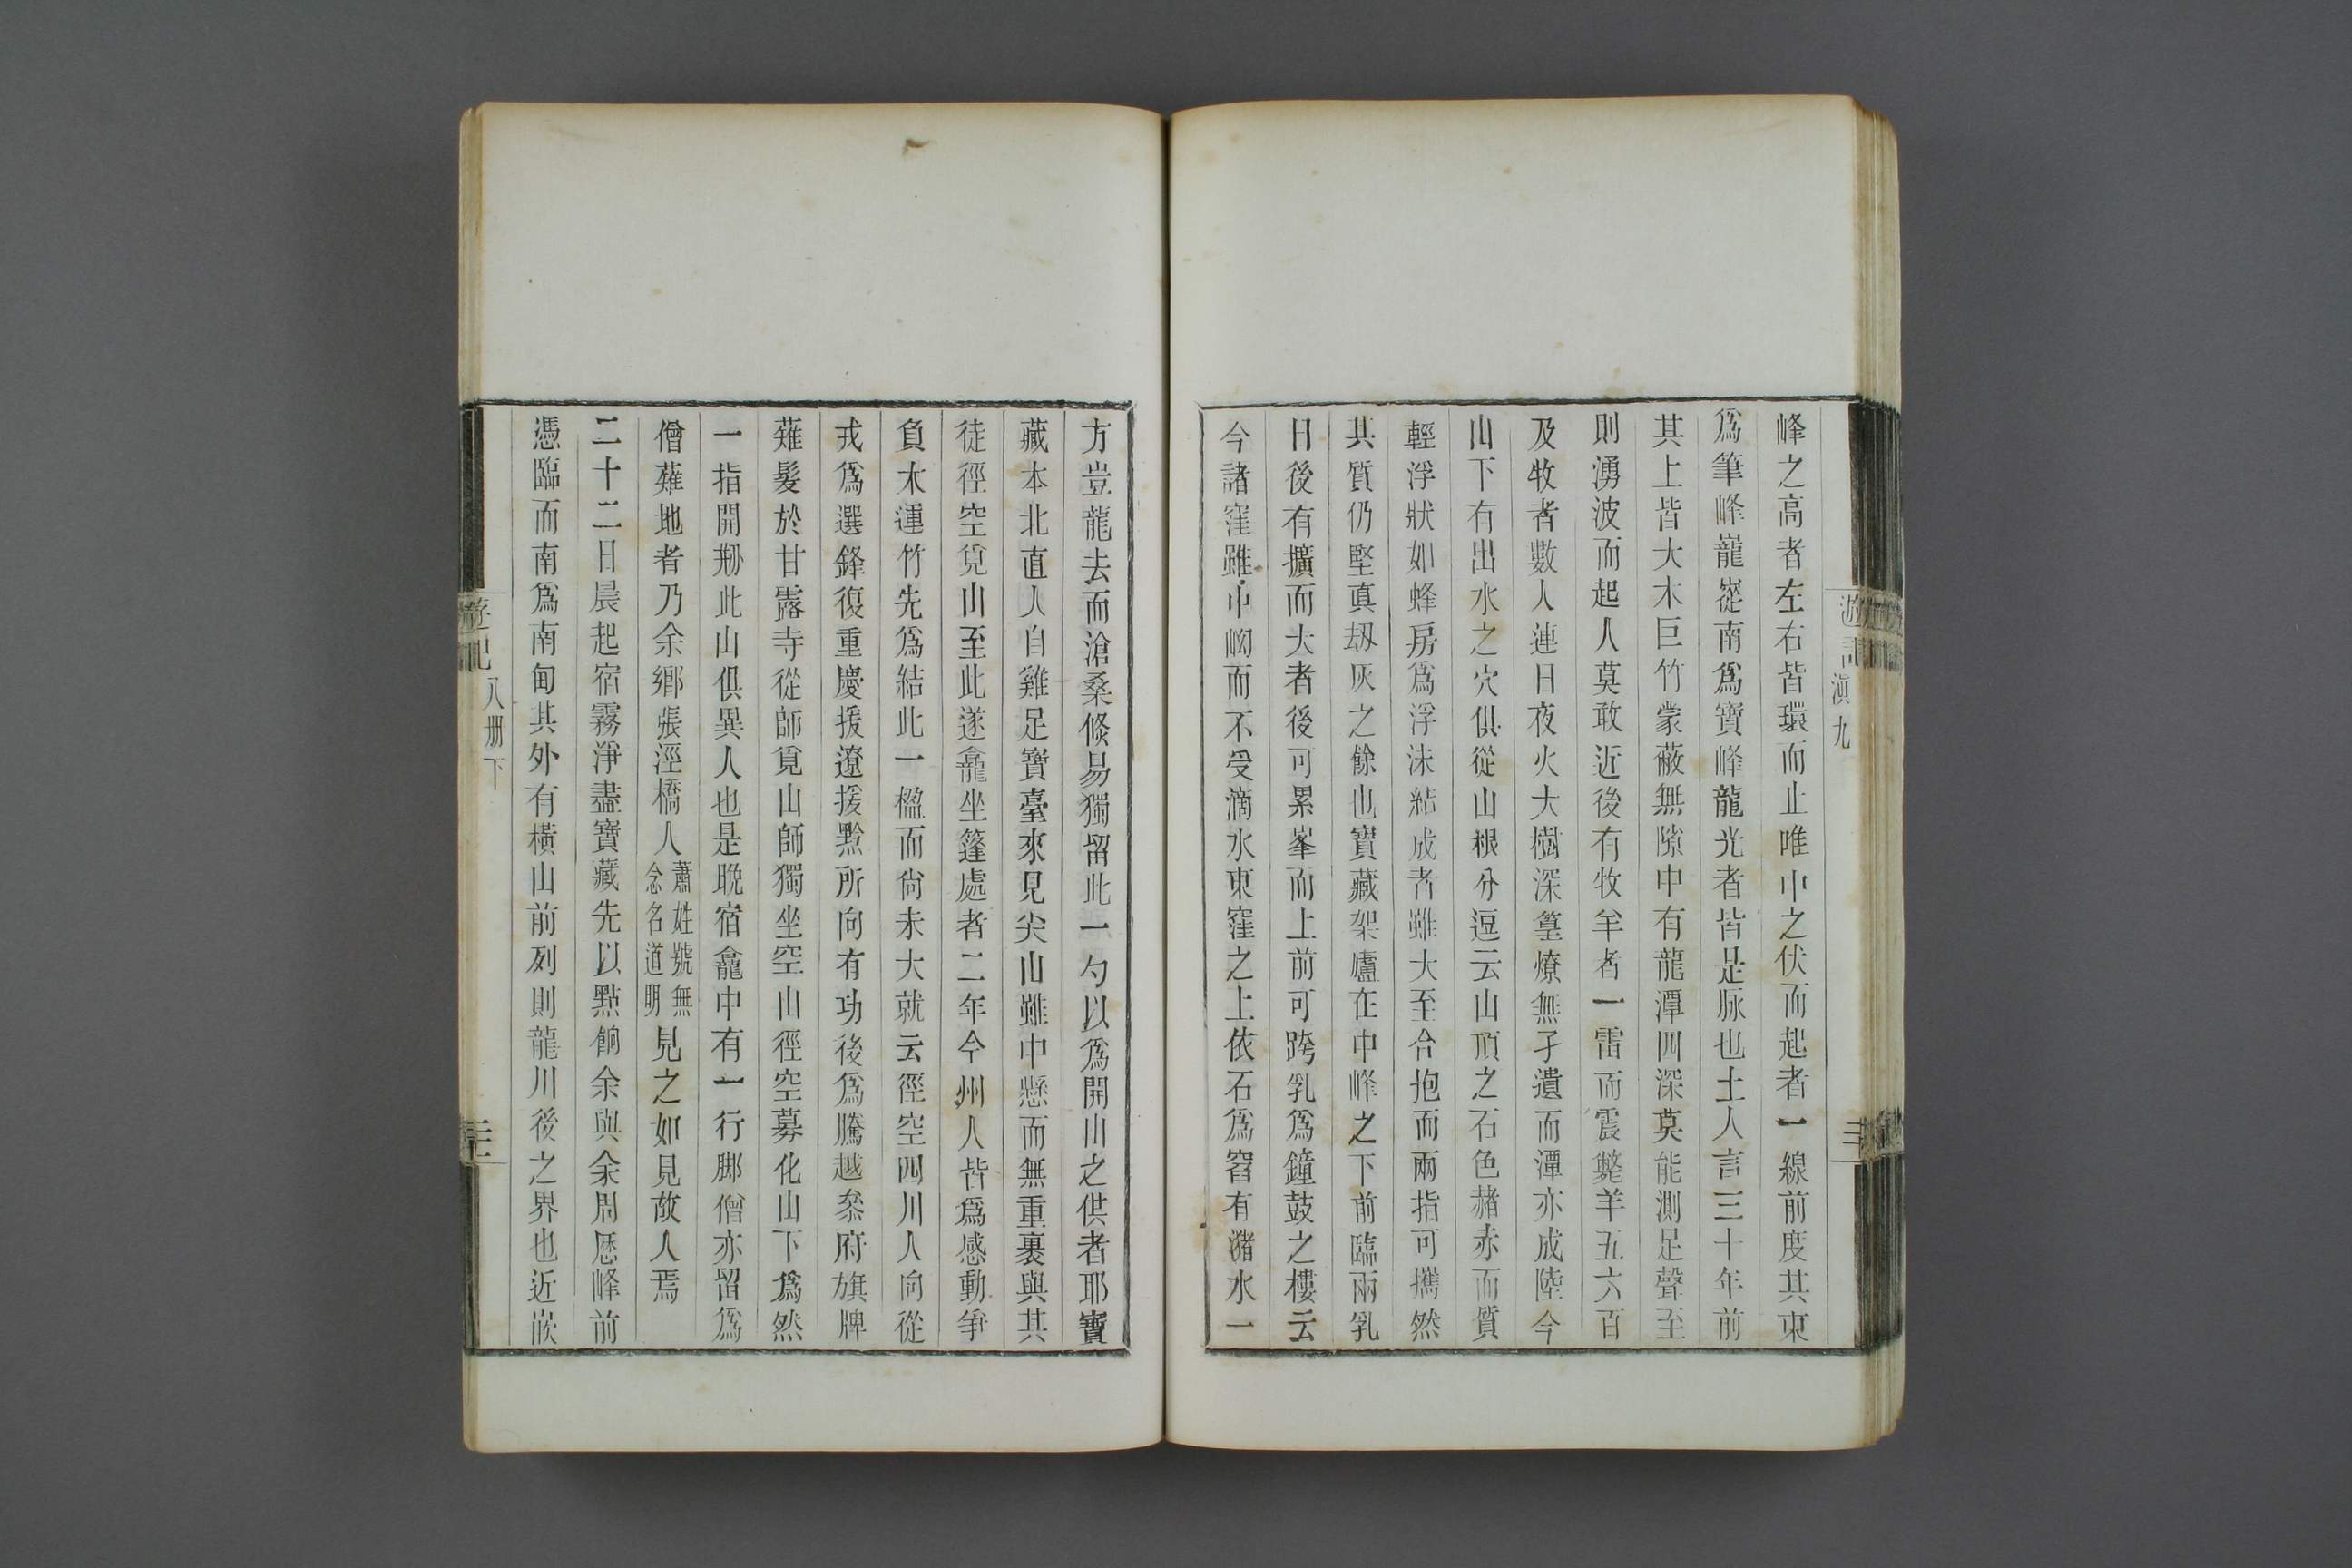 遊記滇九
峰之高者左右皆環而止唯中之伏而起者一線前度其東
爲筆峰巃嵸南爲寶峰龍光者皆是脉也土人言三十年前
其上皆大木巨竹蒙蔽無隙中有龍潭四深莫能測足聲至
則湧波而起人莫敢近後有牧羊者一雷而震斃羊五六百
及牧者數人連日夜火大樹深篁燎無孑遺而潭亦成陸今
山下有出水之穴俱從山根分逗云山頂之石色赭赤而質
輕浮狀如蜂房爲浮沫結成者雖大至合抱而兩指可攜然
其質仍堅真劫灰之餘也寶藏架廬在中峰之下前臨兩乳
日後有擴而大者後可累峯而上前可跨乳爲鐘鼓之樓云
今諸窪雖中㘭而不受滴水東窪之上依石爲窞有瀦水一
方豈龍去而滄桑倐易獨留此一勺以爲開山之供者耶寶
藏本北直人自雞足寶臺來見尖山雖中懸而無重裹與其
徒徑空覓山至此遂龕坐篷處者二年今州人皆爲感動爭
負木運竹先爲結此一楹而尙未大就云徑空四川人向從
戎爲選鋒復重慶援遼援黔所向有功後爲騰越叅府旗牌
薙髮於甘露寺從師覓山師獨坐空山徑空募化山下爲然
一指開剙此山俱異人也是晚宿龕中有一行脚僧亦留爲
僧薙地者乃余鄉張涇橋人蕭姓號無念名道明見之如見故人焉
二十二日晨起宿霧淨盡寶藏先以點餉余與余周厯峰前
憑臨而南爲南甸其外有橫山前列則龍川後之界也近嵌
遊記八册下